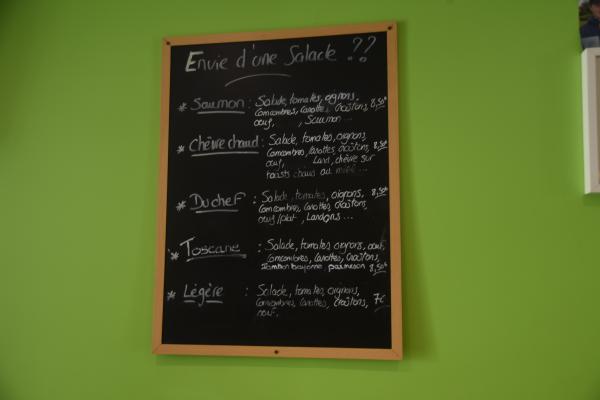 Envie d'une Salade ??
* Saumon : Salade, tomates, oignons,
Concombres, Carottes, Croûtons, 8,50€
oeuf, , Saumon...
* Chèvre chaud : Salade, tomates, oignons,
Concombres, Carottes, Croûtons, 8,50€
oeuf, Lard, chèvre sur
toasts chaud au miel ...
* Du chef : Salade, tomates, oignons, 8,50€
Concombres, Carottes, Croûtons,
oeuf /plat , Lardons ...
* Toscane : Salade, tomates, oignons, oeuf,
Concombres, Carottes, Croûtons,
Jambon bayonne, parmesan 8,50€
* Légère : Salade, tomates, oignons,
Concombres, Carottes, Croûtons, 7€
oeuf.